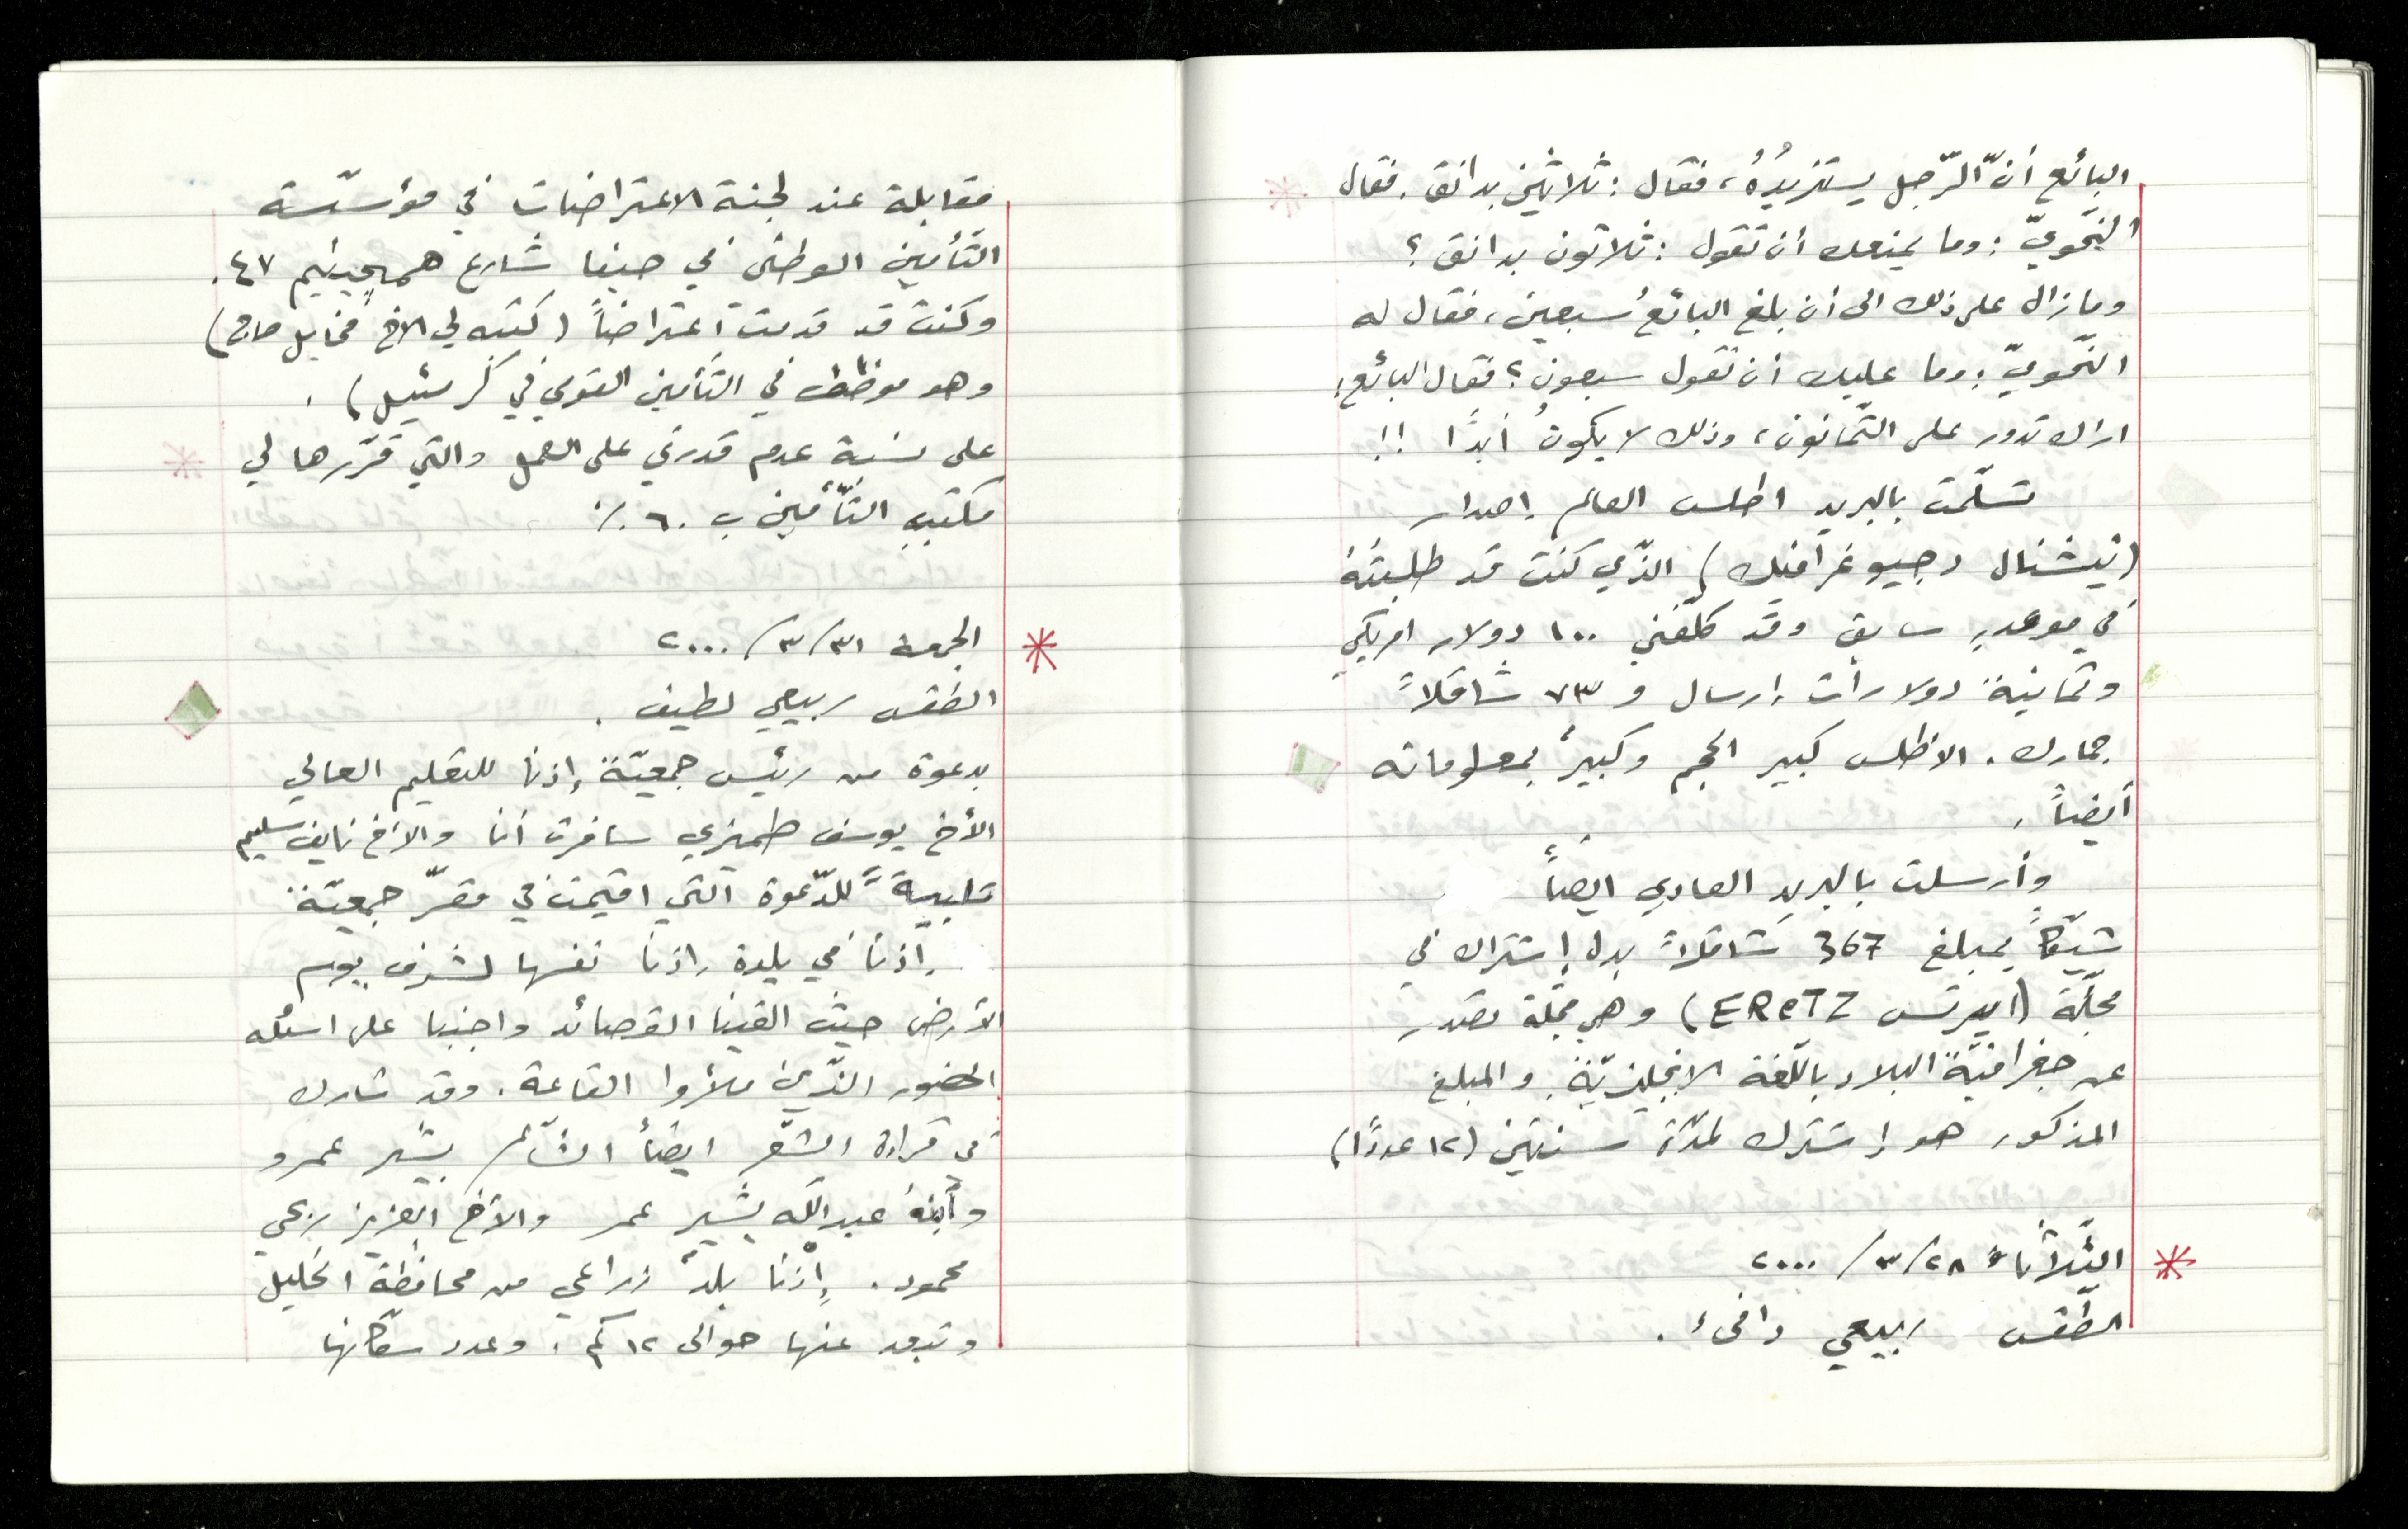 البائع أنّ الرّجل يستزيدُهُ، فقال: ثلاثين بدانق. فقال
النّحويّ: وما يمنعك أن تقول: ثلاثون بدانق؟
وما زال على ذلك الى أن بلغ البائعُ سبعين، فقال له
النّحويّ: وما عليك أن تقول سبعون؟ فقال البائع:
اراك تدور على الثّمانون، وذلك لا يكونُ أبدًا !!
تسلّمت بالبريد اطلس العالم إصدار
(نيشنال دجيوغرافيك) الذّي كنت قد طلبتُهُ
في موعدٍ سابق وقد كلّفني ١٠٠ دولار امريكي
وثمانية دولارات إرسال و ٧٣ شاقلاً
جمارك. الاطلس كبير الحجم وكبيرٌ بمعلوماته
أيضاً.
وأرسلت بالبريد العادي ايضاً
شيكّاً بمبلغ 367 شاقلاً بدل إشتراك في
مجلّة (ايرتس ERETZ) وهي مجلّة تصدر
عن جغرافيّة البلاد باللّغة الانجليزيّة. والمبلغ
المذكور هو إشترك لمدّة سنتين (١٢ عددًا)
الثّلاثاء ٢٨/٣/٢٠٠٠
الطّقس ربيعي دافىء.
مقابلة عند لجنة الاعتراضات في مؤسّسة
التّأمين الوطني في حيفا شارع همچينيم ٤٧.
وكنت قد قدمت أعتراضاً (كتبه لي الاخ مخايل حاج)
وهو موظّف في التّأمين القومي في كرميئيل).
على نسبة عدم قدرتي على العمل والتي قرّرها لي
مكتب التّأمين ب ٦٠٪
الجمعة ٣١/٣/٢٠٠٠
الطّقس ربيعي لطيف.
بدعوة من رئيس جمعيّة إذنا للتعليم العالي
الأخ يوسف طميزي سافرت أنا والاخ نايف سليم
تلبيةً للدّعوة الّتي اقيمت في مقرّ جمعيّة
إذنا في بلدة إذنا نفسها لشرف يوم
الأرض حيث القينا القصائد واجبنا على اسئله
الحضور الذّين ملأوا القاعة. وقد شارك
في قراءة الشّعر ايضاً الشّاعر بشير عمرو
وأبنهُ عبدالله بشير عمر والأخ العزيز ربحي
محمود. إذنا بلدٌ زراعي من محافظة الخليل
وتبعد عنها حوالى ١٢ كم، وعدد سكّانها